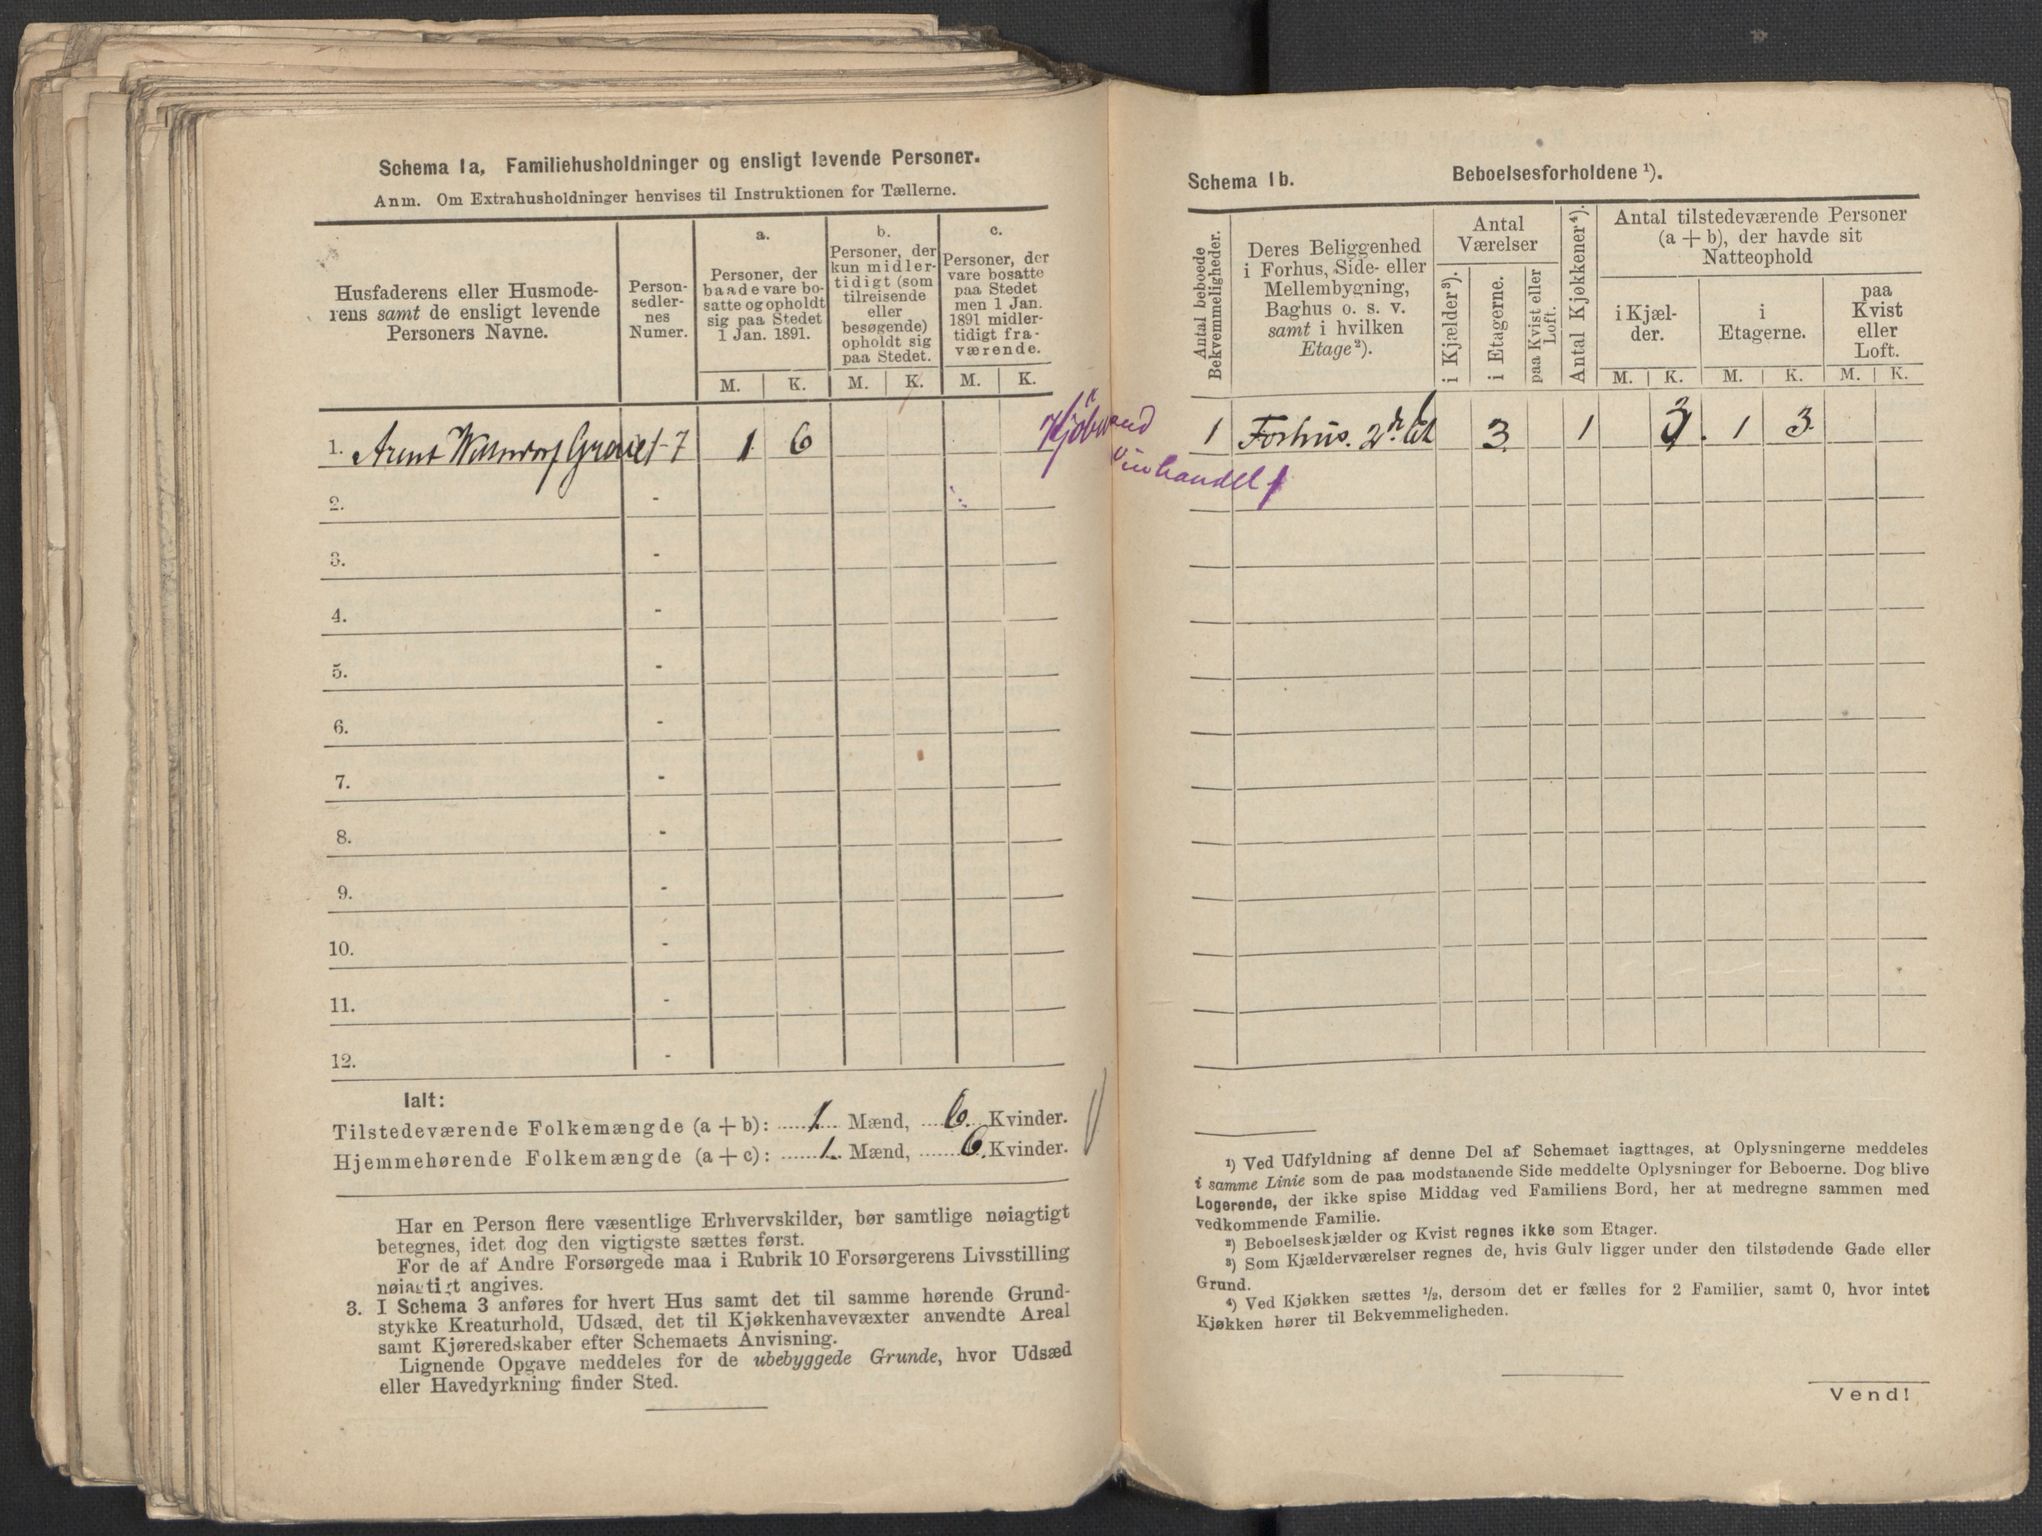 Schema 1a, Familiehusholdninger og ensligt levende Personer.
Anm. Om Extrahusholdninger henvises til Instruktionen for Tællerne.
Husfaderens eller Husmode-
rens samt de ensligt levende
Personers Navne.
Person-
sedler-
nes
Numer.
a.
Personer, der
baade vare bo-
satte og opholdt
sig paa Stedet
1 Jan. 1891.
b.
Personer, der
kun midler-
tidigt (som
tilreisende
eller
besøgende)
opholdt sig
paa Stedet.
c.
Personer, der
vare bosatte
paa Stedet
men 1 Jan.
1891 midler-
tidigt fra-
værende.
M. K. M. K. M. K.
1. Arent 1-7 1 6
2. -
3. -
4. -
5. -
6. -
7. -
8. -
9. -
10. -
11. -
12. -
Ialt:
Tilstedeværende Folkemængde (a + b): 1. Mænd, 6. Kvinder.
Hjemmehørende Folkemængde (a + c): 1. Mænd, 6. Kvinder.
Har en Person flere væsentlige Erhvervskilder, bør samtlige nøiagtigt
betegnes, idet dog den vigtigste sættes først.
For de af Andre Forsørgede maa i Rubrik 10 Forsørgerens Livsstilling
nøiagtigt angives.
3. I Schema 3 anføres for hvert Hus samt det til samme hørende Grund-
stykke Kreaturhold, Udsæd, det til Kjøkkenhavevæxter anvendte Areal
samt Kjøreredskaber efter Schemaets Anvisning.
Lignende Opgave meddeles for de ubebyggede Grunde, hvor Udsæd
eller Havedyrkning finder Sted.
Schema 1b. Beboelsesforholdene ¹).
Antal beboede
Bekvemmeligheder.
Deres Beliggenhed
i Forhus, Side- eller
Mellembygning,
Baghus o. s. v.
samt i hvilken
Etage²).
Antal
Værelser
i Kjælder³).
i Etagerne.
paa Kvist eller
Loft.
Antal Kjøkkener⁴).
Antal tilstedeværende Personer
(a + b), der havde sit
Natteophold
i Kjæl-
der.
i
Etagerne.
paa
Kvist
eller
Loft.
M. K. M. K. M. K.
1 Forhus. 2 3 1 3 1 3
Vinhandel
¹) Ved Udfyldning af denne Del af Schemaet iagttages, at Oplysningerne meddeles
i samme Linie som de paa modstaaende Side meddelte Oplysninger for Beboerne. Dog blive
Logerende, der ikke spise Middag ved Familiens Bord, her at medregne sammen med
vedkommende Familie.
²) Beboelseskjælder og Kvist regnes ikke som Etager.
³) Som Kjælderværelser regnes de, hvis Gulv ligger under den tilstødende Gade eller
Grund.
⁴) Ved Kjøkken sættes ½, dersom det er fælles for 2 Familier, samt 0, hvor intet
Kjøkken hører til Bekvemmeligheden.
Vend!